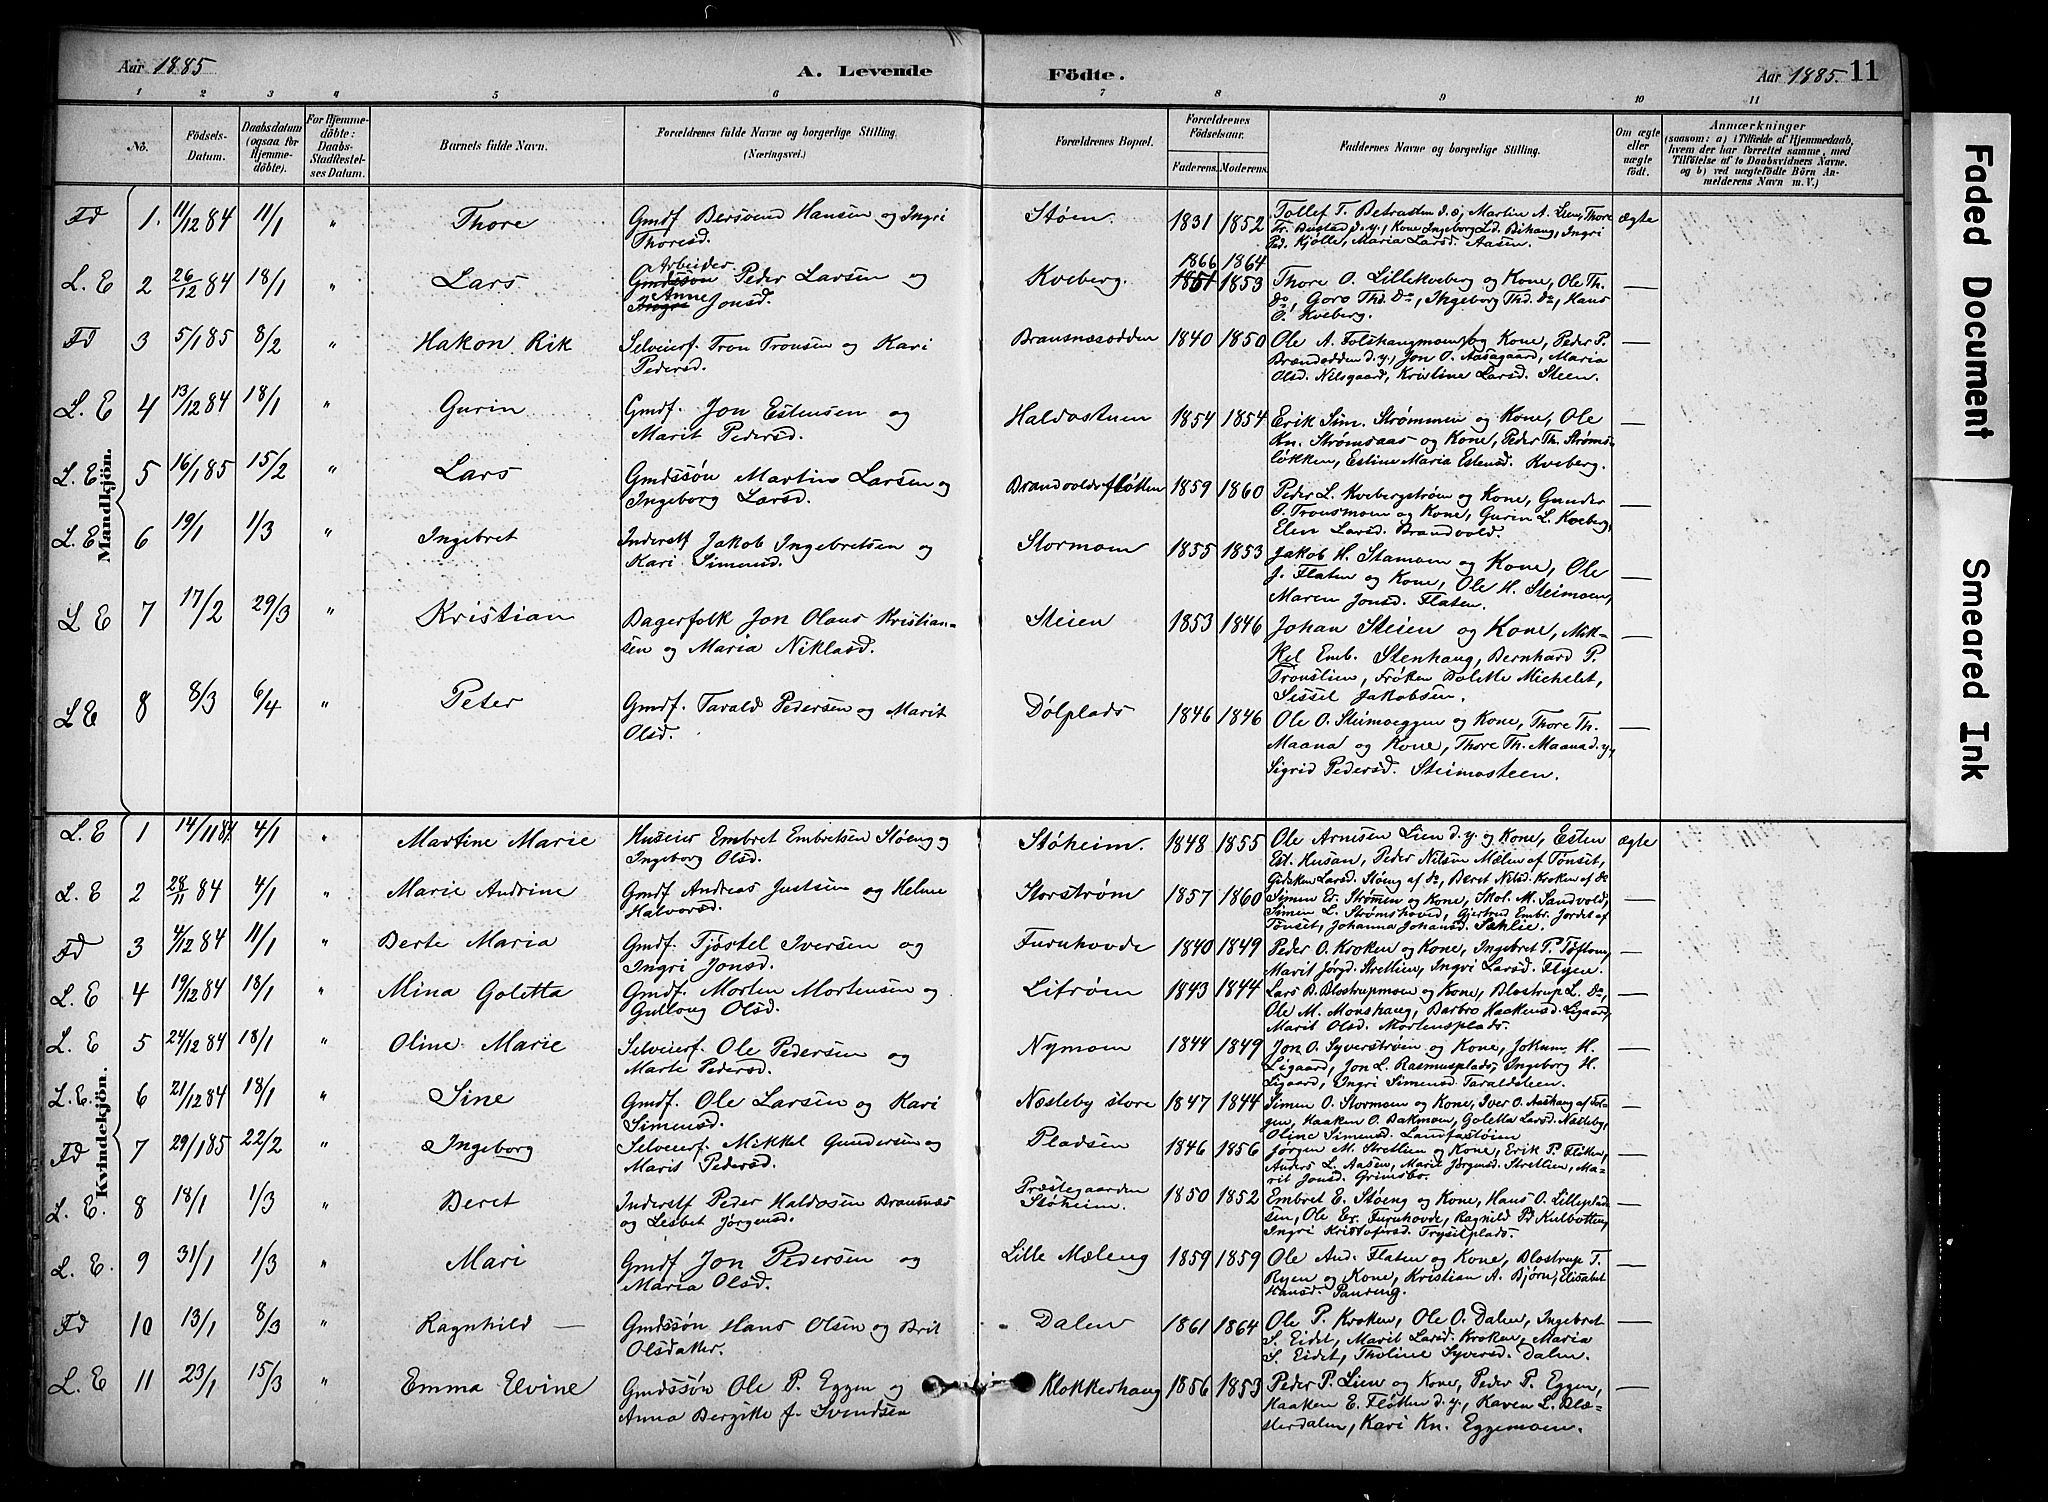 Aar 1885
A. Levende Födte.
Aar 1885. 11
1 2 3 4 5 6 7 8 9 10 11
No.
Födsels-
Datum.
Daabsdatum
(ogsaa for
Hjemme-
döbte).
For Hjemme-
döbte:
Daabs-
Stadfæstel-
ses Datum.
Barnets fulde Navn.
Forældrenes fulde Navne og borgerlige Stilling.
(Næringsvei.)
Forældrenes Bopæl.
Forældrenes
Födselsaar.
Faderens. Moderens.
Faddernes Navne og borgerlige Stilling.
Om ægte
eller
uægte
födt.
Anmærkninger
(saasom: a) i Tilfælde af Hjemmedaab,
hvem der har forrettet samme, med
Tilföielse af to Daabsvidners Navne.
og b) ved uægtefödte Börn An-
melderens Navn m. V.)
Mandkjön.
Fd 1. 11/12 84 11/1 " Thore
Gmdf. Bersvend Hansen og Ingri
Thoresd.
Støen. 1831 1852
Tollef T. Betrasten d. e., Martin A. Lien, Thore
Tr. Bustad d. y., Kone Ingeborg Ld. Bihaug, Ingri
Ped. Kjølle, Maria Larsd. Aasen.
ægte
L. E 2 26/12 84 18/1 " Lars
Arbeider
Gmdssøn Peder Larsen og
Anne
Ingri Jonsd.
Kveberg. 1866 1864
1851 1853
Thore O. Lillekveberg og Kone, Ole Th.
do, Goro Thd. Do, Ingeborg Thd. Do, Hans
O. Kveberg.
—
Fd 3 5/1 85 8/2 " Hakon Rik
Selveierf. Tron Tronsen og Kari
Pedersd.
Bransnæsodden 1840 1850
Ole A. Folshaugmoen og Kone, Peder P.
Brændodden d. y., Jon O. Aasagaard, Maria
Olsd. Nilsgaard, Kristine Larsd. Steen.
—
L. E 4 13/12 84 18/1 " Gurin
Gmdf. Jon Estensen og
Marit Pedersd.
Haldostuen 1854 1854
Erik Sim. Strømmen og Kone, Ole
Kn. Strømsaas og Kone, Peder Th. Strøms-
løkken, Estine Maria Estensd. Kveberg.
—
L. E 5 16/1 85 15/2 " Lars
Gmdssøn Martin Larsen og
Ingeborg Larsd.
Brandvoldsfløtten 1859 1860
Peder L. Kvebergstrøen og Kone, Gunder
O. Tronsmoen og Kone, Gurin L. Kveberg,
Elen Larsd. Brandvold.
—
L. E 6 19/1 1/3 " Ingebret
Inderstf Jakob Ingebretsen og
Kari Simensd.
Stormoen 1855 1853
Jakob H. Stamoen og Kone, Ole
J. Flaten og Kone, Ole H. Steimoen,
Maren Jonsd. Flaten.
—
L E 7 17/2 29/3 " Kristian
Bagerfolk Jon Olaus Kristian-
sen og Maria Niklasd.
Steien 1853 1846
Johan Steien og Kone, Mik-
kel Emb. Stenhaug, Bernhard P.
Tronslien, Frøken Bolette Michelet,
Sissel Jakobsen.
—
L E 8 8/3 6/4 " Peter
Gmdf. Tarald Pedersen og Marit
Olsd.
Dølplads 1846 1846
Ole O. Steimoeggen og Kone, Thore Th.
Maana og Kone, Thore Th. Maana d. y,
Sigrid Pedersd. Steimosteen.
—
Kvindekjön.
L. E 1 14/11 84 4/1 " Martine Marie
Huseier Embret Embretsen Støeng og
Ingeborg Olsd.
Støheim. 1848 1855
Ole Arnesen Lien d. y. og Kone, Esten
Est. Husan, Peder Nilsen Mælen af Tønset,
Gidsken Larsd. Støeng af do, Beret Nilsd. Kroken af do
ægte
L. E 2 28/11 84 4/1 " Marie Andrine
Gmdf Andreas Justsen og Helene
Halvorsd.
Storstrøm 1857 1860
Simen Er. Strømen og Kone, Skol. M. Sandvold,
Simen L. Strømshoved, Gjertrud Embr. Jordet af
Tønset, Johanna Johansd. Sahlie.
—
Fd 3 4/12 84 11/1 " Berte Maria
Gmdf. Tjøstel Iversen og
Ingri Jonsd.
Furuhovde 1840 1849
Peder O. Kroken og Kone, Ingebret P. Tøftom,
Marit Jørgd. Stretlien, Ingri Larsd. Flyen.
—
L. E 4 19/12 84 18/1 " Mina Goletta
Gmdf. Morten Mortensen og
Gullaug Olsd.
Litrøen 1843 1844
Lars B. Blostrupmoen og Kone, Blostrup L. Do,
Ole M. Monshaug, Barbro Haakensd. Ligaard,
Marit Olsd. Mortensplads.
—
L. E 5 24/12 84 18/1 " Oline Marie
Selveierf. Ole Pedersen og
Marte Pedersd.
Nymoen 1844 1849
Jon O. Syverstrøen og Kone, Jokum H.
Ligaard, Jon L. Rasmusplads, Ingeborg H.
Ligaard, Ingri Simensd. Taraldsteen.
—
L. E. 6 21/12 84 18/1 " Sine
Gmdf. Ole Larsen og Kari
Simensd.
Næsteby store 1847 1844
Simen O. Stormoen og Kone, Iver O. Aashaug af Fol-
gen, Haaken O. Bakmoen, Goletta Larsd. Næsteby,
Oline Simensd.
—
Fd 7 29/1 85 22/2 " Ingeborg
Selveierf. Mikkel Gundersen og
Marit Pedersd.
Pladsen 1846 1856
Jørgen M. Stretlien og Kone, Erik P. Fløten,
Anders L. Aasen, Marie Jørgensd. Stretlien, Ma-
rit Jonsd. Grimsbo.
—
L. E. 8 18/1 1/3 " Beret
Inderstf Peder Haldosen Bransnæs
og Lesbet Jørgensd.
Præstegaarden
Støheim. 1850 1852
Embret E. Støeng og Kone, Hans O. Lilleplad-
sen, Ole Er. Furuhovde, Ragnild Pd Kulbotten,
Ingri Kristofersd. Trysilplads.
—
L. E. 9 31/1 1/3 " Mari
Gmdf Jon Pedersen og
Maria Olsd.
Lille Mæleng 1859 1859
Ole And. Flaten og Kone, Blostrup T.
Ryen og Kone, Kristian A. Bjørn, Elisabet
Hansd. Paneng.
—
Fd 10 13/1 8/3 " Ragnhild —
Gmdssøn Hans Olsen og Brit
Olsdatter.
Dalen 1861 1864
Ole P. Kroken, Ole O. Dalen, Ingebret
S. Eidet, Marit Larsd. Kroken, Maria
S. Eidet, Tholine Syversd. Dalen.
—
L. E 11 23/1 15/3 " Emma Elvine
Gmdssøn Ole P. Eggen og
Anna Bergitte f. Svendsen
Klokkerhaug 1856 1853
Peder P. Lien og Kone, Peder P. Eggen,
Haaken E. Fløtten d. y., Karen L. Blæ-
sterdalen, Kari Kn. Eggemoen.
—
Faded Document
Smeared Ink